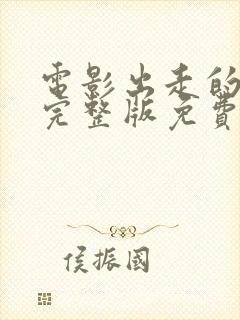 電影出走的
完整版免費
侯振國